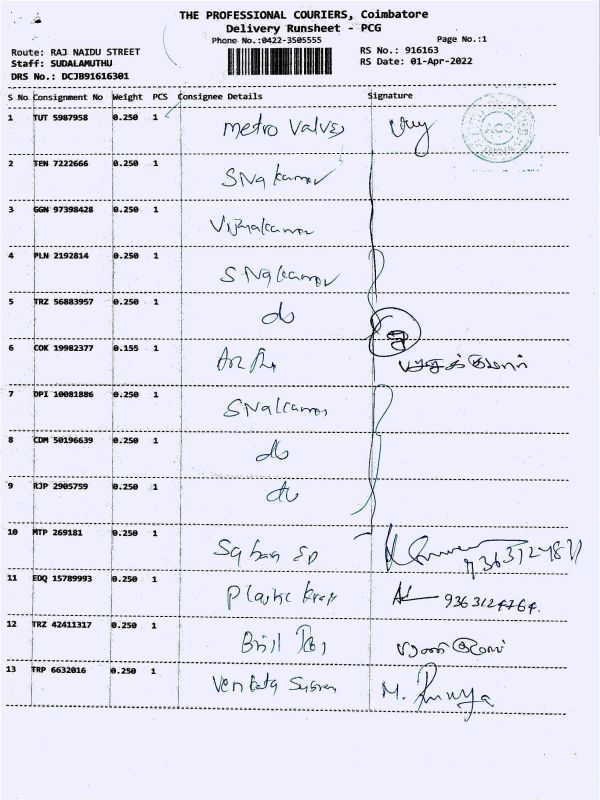 THE PROFESSIONAL COURIERS, Coimbatore
Delivery Runsheet - PCG
Phone No.:0422-3505555 Page No.:1
Route: RAJ NAIDU STREET RS No.: 916163
Staff: SUDALAMUTHU RS Date: 01-Apr-2022
DRS No.: DCJB91616301
S No Consignment No Weight PCS Consignee Details Signature
1 TUT 5987958 0.250 1 Metro Valves
2 TEN 7222666 0.250 1
3 GGN 97398428 0.250 1 Vijayakumar
4 PLN 2192814 0.250 1
5 TRZ 56883957 0.250 1 do
6 COK 19982377 0.155 1
7 DPI 10081886 0.250 1
8 CDM 50196639 0.250 1 do
9 RJP 2905759 0.250 1 do
10 MTP 269181 0.250 1
11 EDQ 15789993 0.250 1 Plastic 9363124764.
12 TRZ 42411317 0.250 1
13 TRP 6632016 0.250 1 Venkata M.